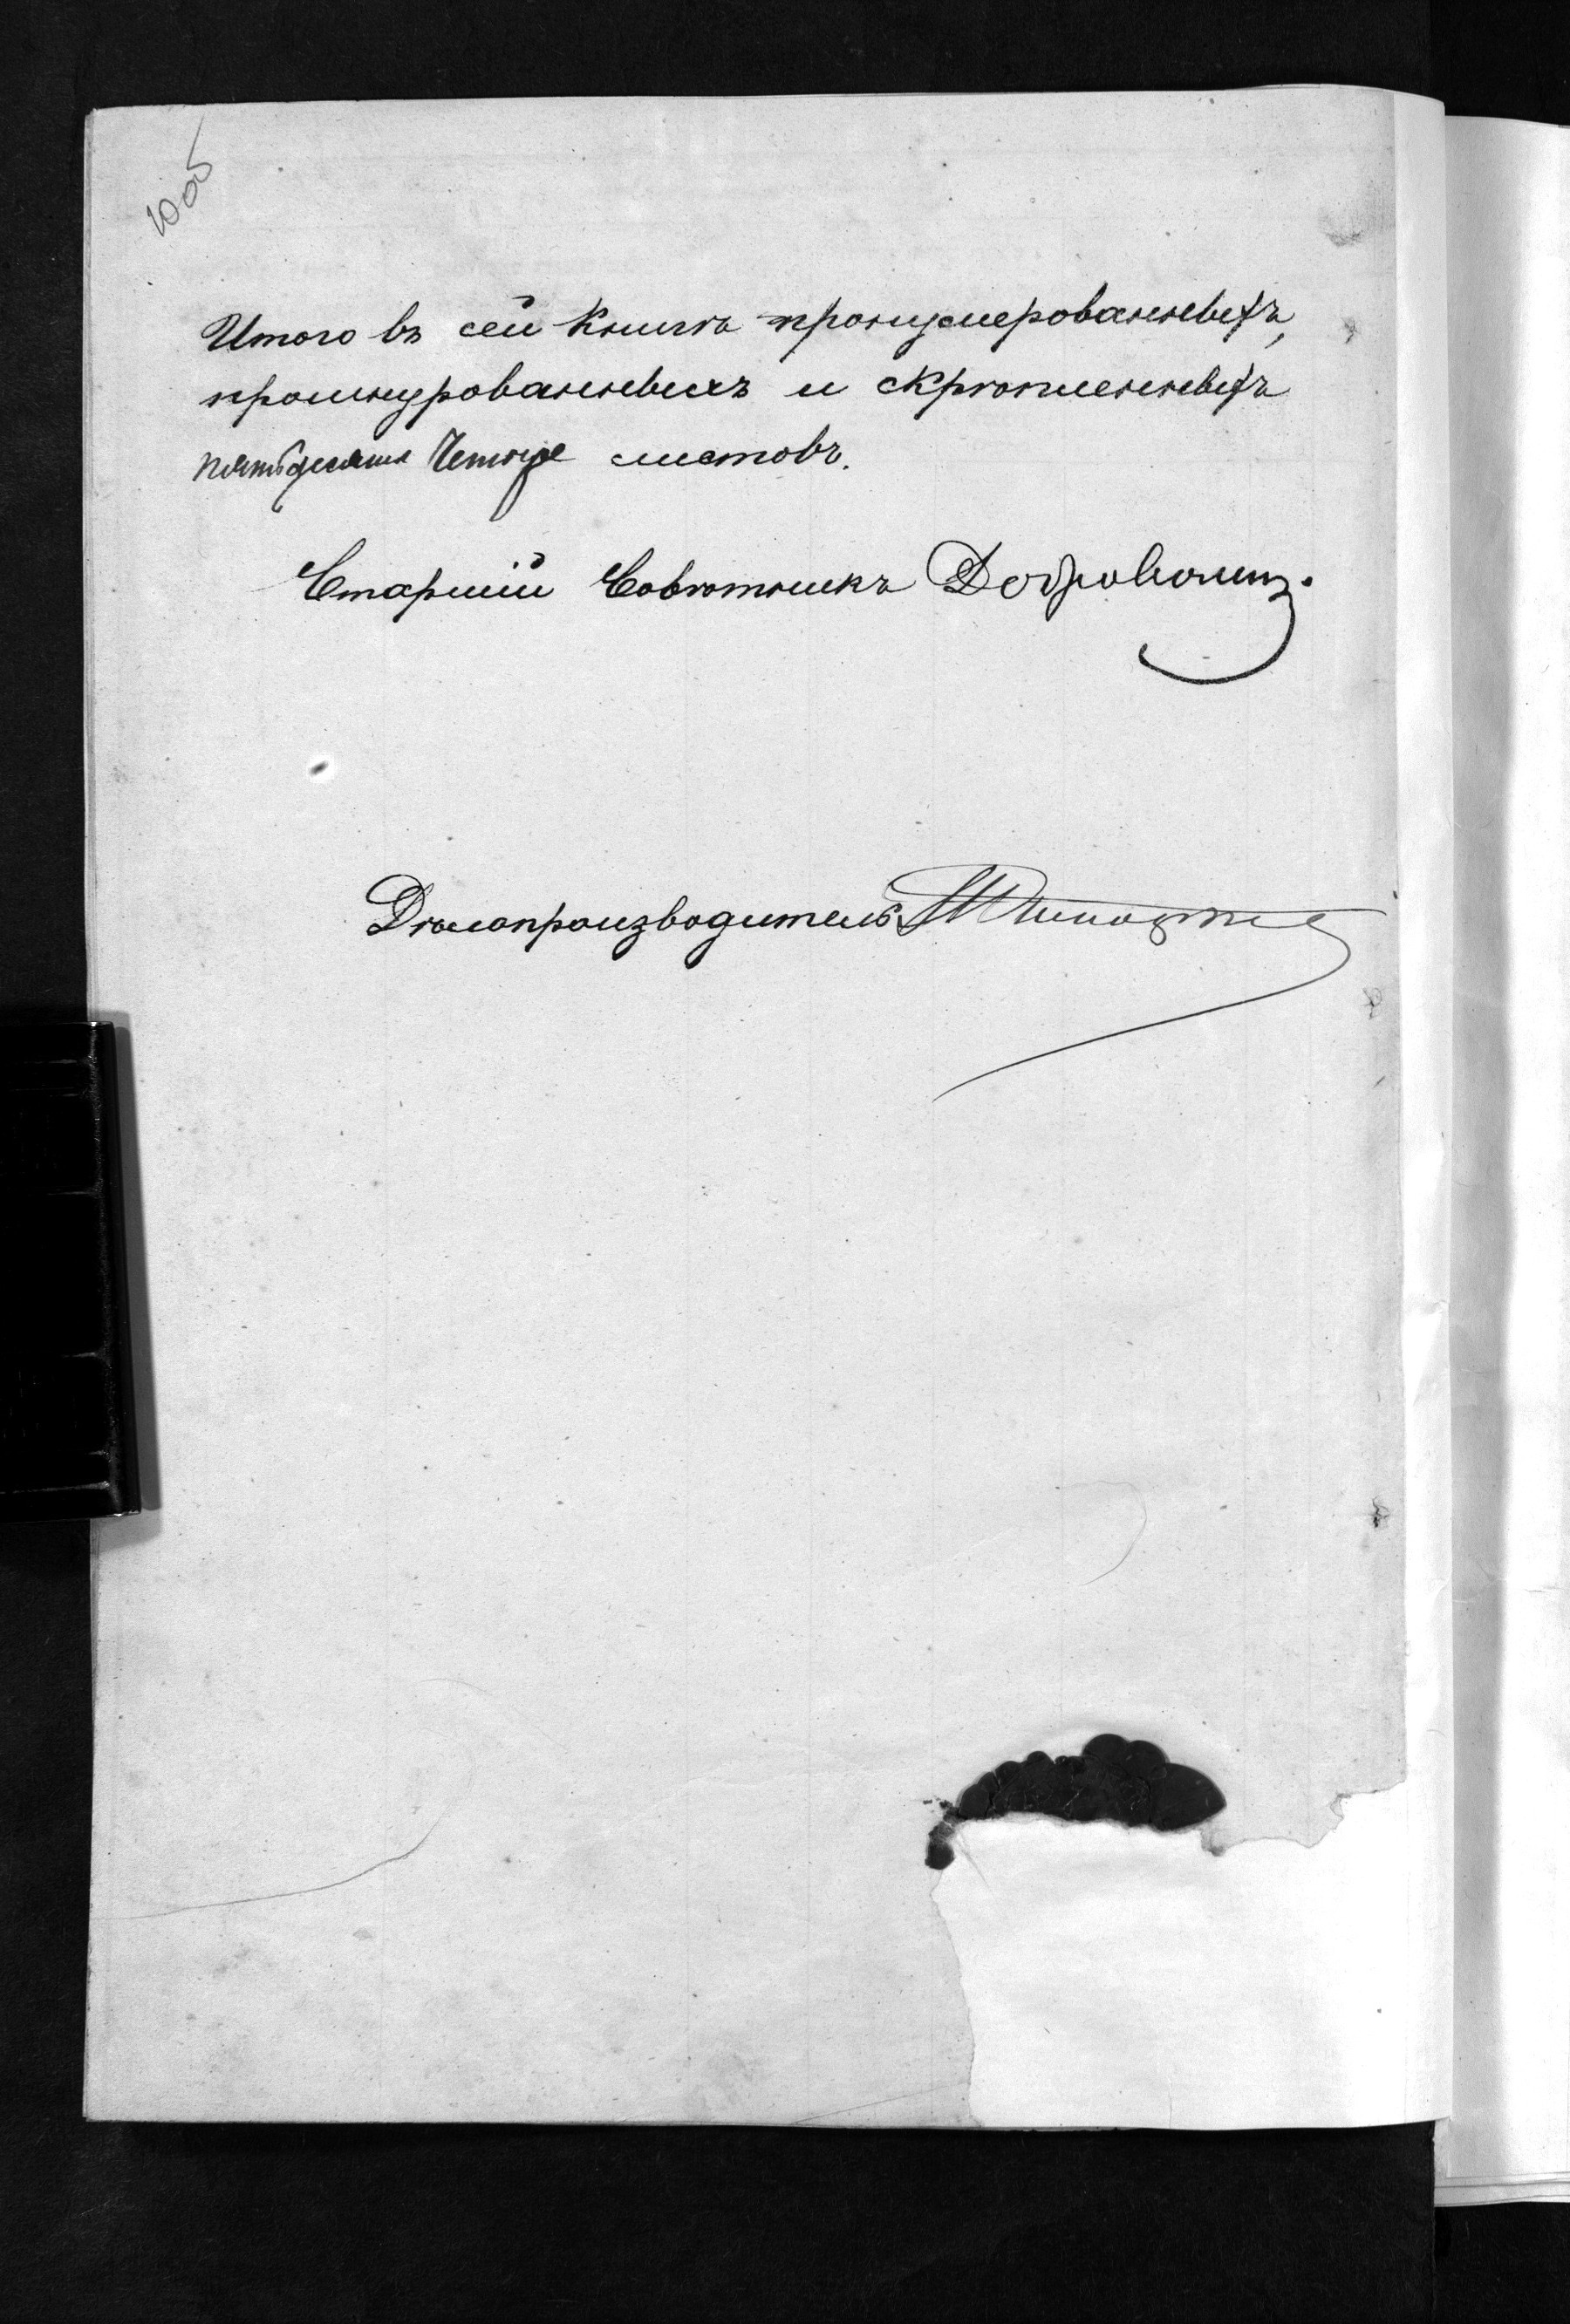 100об
Итого въ сей книгѣ пронумерованныхъ,
прошнурованныхъ и скрѣпленныхъ
пятьдесятъ четыре листовъ.
Старшій Совѣтникъ
Дѣлопроизводитель